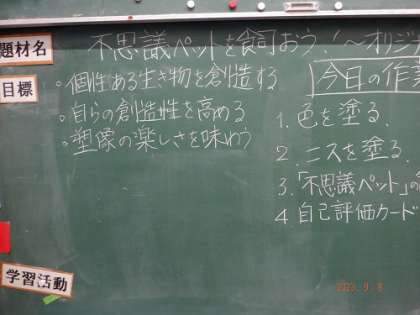 題材名
不思議ペットを飼おう！～オリジ
目標
・個性ある生き物を創造する
・自らの創造性を高める
・塑像の楽しさを味わう
今日の作業
1. 色を塗る.
2. ニスを塗る.
3.「不思議ペット」の
4 自己評価カード
学習活動
2023. 9. 8